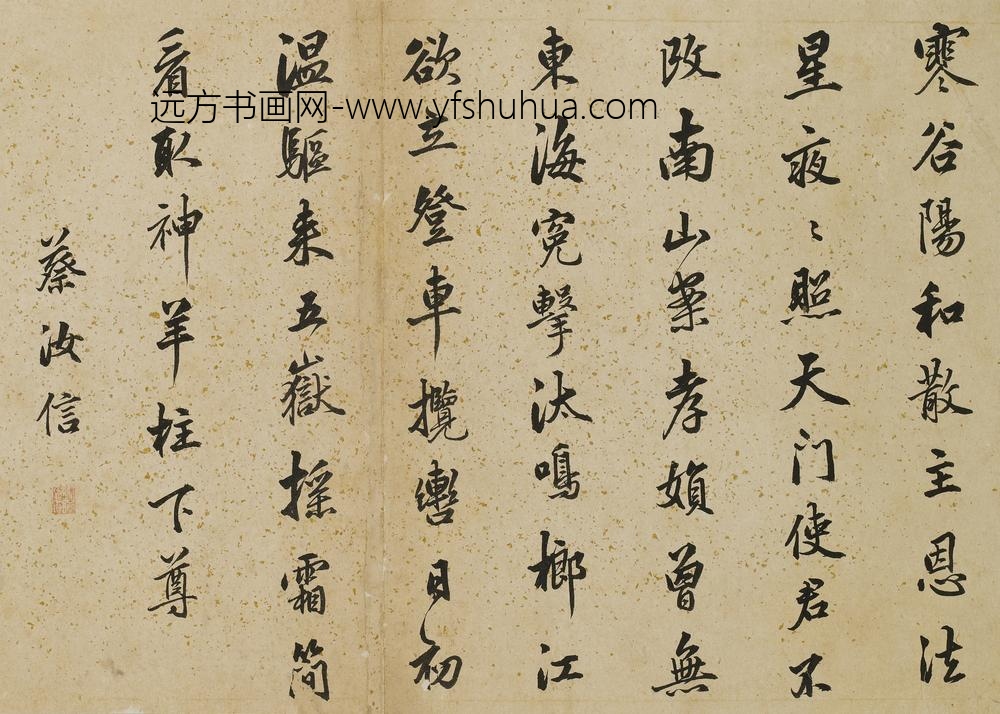 寒谷陽和散主恩法
星夜〻照天门使君不
改南山業孝
曾無
東海冤擊汰鳴榔江
欲立登車攬轡日初
温驅来五嶽採霜简
看取神羊柱下尊
蔡汝信
远方书画网-www.yfshuhua.com